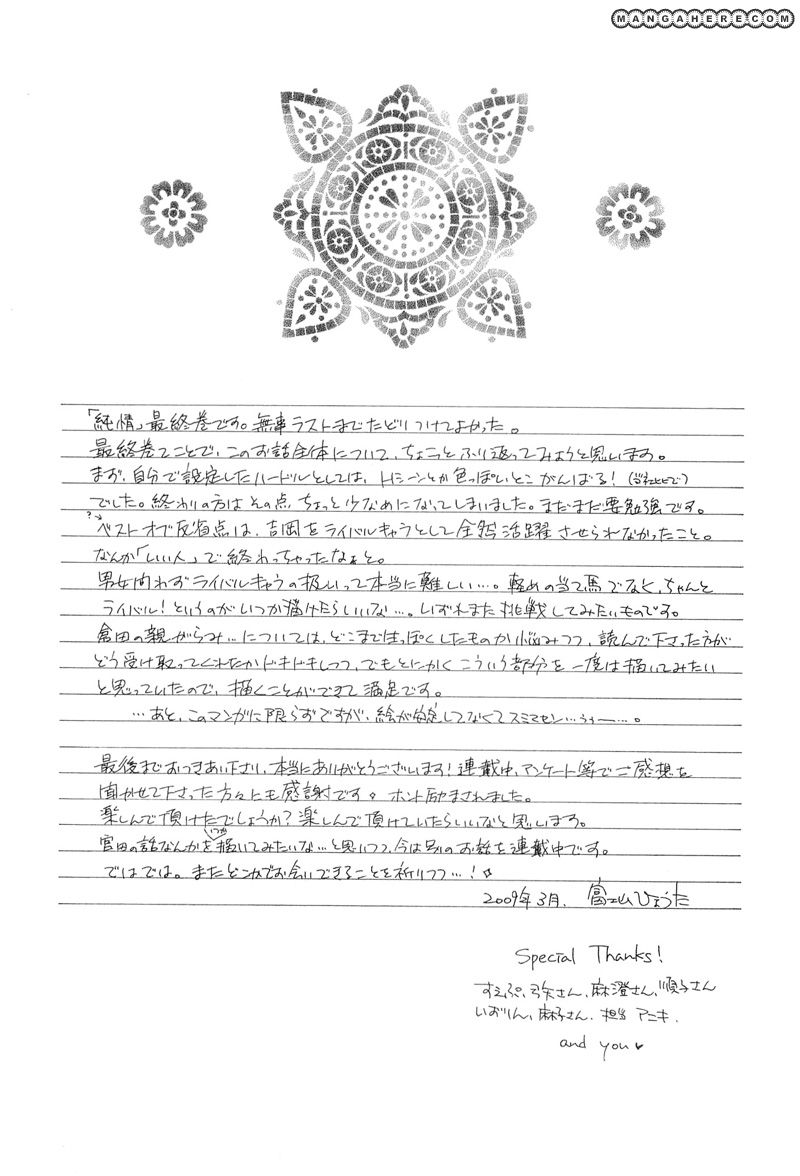 MANGAHERE.COM
「純情」最終巻です。無事ラストまでたどりつけてよかった。
最終巻てことで、このお話全体について、ちょこっとふり返ってみようと思います。
まず、自分で設定したハードルとしては、Hシーンとか色っぽいとこがんばる!(当社比で)
でした。終わりの方はその点ちょっと少なめになってしまいました。まだまだ要勉強です。
ベストオブ反省点は、吉岡をライバルキャラとして全然活躍させられなかったこと。
なんか「いい人」で終わっちゃったなぁと。
男女問わずライバルキャラの扱いって本当に難しい…。軽めの当て馬でなく、ちゃんと
ライバル!というのがいつか描けたらいいな…。いずれまた挑戦してみたいものです。
倉田の親がらみ…については、どこまでほっぽくしたものか悩みつつ、読んで下さった方が
どう受け取ってくれたかドキドキしつつ、でもとにかくこういう部分を一度は描いてみたい
と思っていたので、描くことができて満足です。
…あと、このマンガに限らずですが、絵が安定してなくてスミマセン…うぅー…。
最後までおつきあい下さり、本当にありがとうございます!連載中、アンケート等でご感想を
聞かせて下さった方々にも感謝です。ホント励まされました。
楽しんで頂けたでしょうか?楽しんで頂けていたらいいなと思います。
宮田の話なんかをいつか描いてみたいな…と思いつつ、今は別のお話を連載中です。
ではでは。またどこかでお会いできることを祈りつつ…!☆
2009年3月. 富士山ひょうた
Special Thanks!
すえぷ、弓矢さん、麻澄さん、順子さん
いおりん、麻子さん、担当アニキ.
and you♥